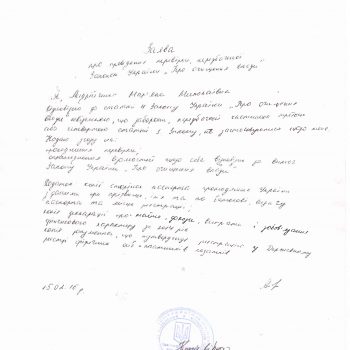 Заява
про проведення перевірки, передбаченої
Законом України „Про очищення влади"
Я, Мар'яна Миколаївна
відповідно до статті 4 Закону України „Про очищення
влади" повідомляю, що заборони, передбачені частиною третьою
або четвертою статті 1 Закону, не застосовуються щодо мене.
Надаю згоду на:
проходження перевірки;
оприлюднення відомостей щодо себе відповідно до вимог
Закону України „Про очищення влади".
Додаток: копії сторінок паспорта громадянина України
з даними про прізвище, ім'я та по батькові, видачу
паспорта та місце реєстрації;
копія декларації про майно, доходи, витрати і зобов'язання
фінансового характеру за рік;
копія документа, що підтверджує реєстрацію у Державному
реєстрі фізичних осіб - платників податків
15.02.16 р.